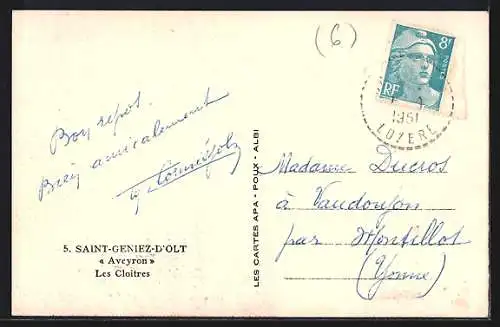 (6)
8F
POSTES
RF
1951
LOZERE
Bon repos.
Bien amicalement
LES CARTES APA - POUX - ALBI
Madame Ducros
à Vaudoujon
par Montillot
(Yonne)
5. SAINT-GENIEZ-D'OLT
« Aveyron »
Les Cloîtres